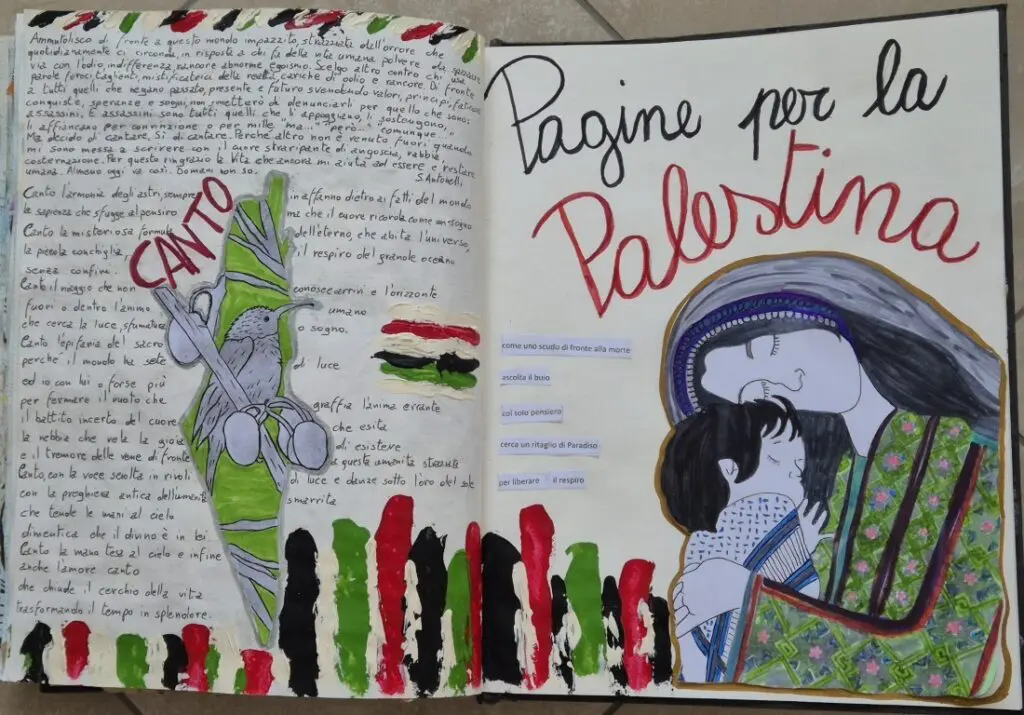 Ammutolisco di fronte a questo mondo impazzito, straziata dall'orrore che
quotidianamente ci circonda, in risposta a chi fa della vita umana polvere da spazzare
via con l'odio, indifferenza, rancore abnorme egoismo. Scelgo altro contro chi usa
parole feroci, taglienti, mistificatrici della realtà, cariche di odio e rancore. Di fronte
a tutti quelli che negano passato, presente e futuro svendendo valori, principi, fatiche,
conquiste, speranze e sogni, non smetterò di denunciarli per quello che sono:
assassini. E assassini sono tutti quelli che li appoggiano, li sostengono,
li affiancano per convinzione o per mille "ma..." "però..." comunque".
Ma decido di cantare. Si di cantare. Perché altro non è venuto fuori quando
mi sono messa a scrivere con il cuore straripante di angoscia, rabbia,
costernazione. Per questo ringrazio la Vita che ancora mi aiuta ad essere e restare
umana. Almeno oggi va così. Domani non so.
S. Antonelli
CANTO
Canto l'armonia degli astri, sempre in affanno dietro ai fatti del mondo
la sapienza che sfugge al pensiro ma che il cuore ricorda come un sogno
Canto la misteriosa formula dell'eterno, che abita l'universo,
la piccola conchiglia, il respiro del grande oceano
senza confini.
Canto il viaggio che non conosce arrivi e l'orizzonte
fuori o dentro l'animo umano
che cerca la luce, sfumatura o sogno.
Canto l'epifania del sacro
perché il mondo ha sete di luce
ed io con lui o forse più
per fermare il vuoto che graffia l'anima errante
il battito incerto del cuore che esita
la nebbia che vela la gioia di esistere
e il tremore delle vene di fronte a questa umanità straziata
Canto, con la voce sciolta in rivoli di luce e danze sotto l'oro del sole
con la preghiera antica dell'umanità smarrita
che tende le mani al cielo
dimentica che il divino è in lei
Canto la mano tesa al cielo e infine
anche l'amore canto
che chiude il cerchio della vita
trasformando il tempo in splendore.
Pagine per la
Palestina
come uno scudo di fronte alla morte
ascolta il buio
col solo pensiero
cerca un ritaglio di Paradiso
per liberare il respiro